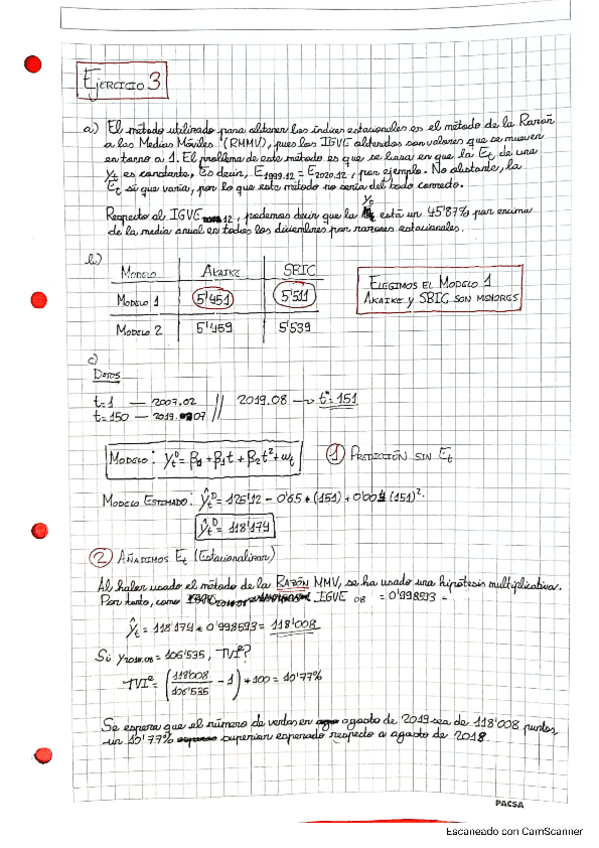 EJERCICIO 3
a) El método utilizado para obtener los índices estacionales es el método de la Razón
a las Medias Móviles (RMMV), pues los IGVE obtenidos son valores que se mueven
en torno a 1. El problema de este método es que se basa en que la Et de una
yt es constante, es decir, E1999.12 = E2020.12, por ejemplo. No obstante, la
Et sí que varía, por lo que este método no sería del todo correcto.
Respecto al IGVE 12, podemos decir que la yt está un 45'87% por encima
de la media anual en todos los diciembres por razones estacionales.
b)
MODELO AKAIKE SBIC
MODELO 1 5'451 5'511
MODELO 2 5'459 5'539
ELEGIMOS EL MODELO 1
AKAIKE Y SBIC SON MENORES
c)
DATOS
t=1 — 2007.02 // 2019.08 → t=151
t=150 — 2019.07
MODELO: ytD = β0 + β1t + β2t² + wt
① PREDICCIÓN SIN Et
MODELO ESTIMADO: ŷtD = 125'12 - 0'65 * (151) + 0'004 (151)².
ŷtD = 118'174
② AÑADIMOS Et (Estacionalizar)
Al haber usado el método de la RAZÓN MMV, se ha usado una hipótesis multiplicativa.
Por tanto, como IGVE 08 = 0'998593 -
ŷt = 118'174 * 0'998593 = 118'008
Si y2018.08 = 106'535, TVI?
TVI = (118'008/106'535 - 1) * 100 = 10'77%
Se espera que el número de ventas en agosto de 2019 sea de 118'008 puntos,
un 10'77% superior esperado respecto a agosto de 2018.
PACSA
Escaneado con CamScanner